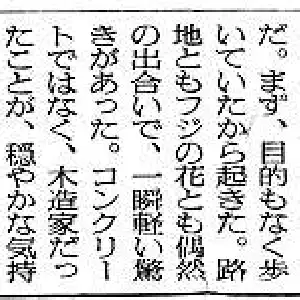 だ。まず、目的もなく歩
いていたから起きた。路
地ともフジの花とも偶然
の出合いで、一瞬軽い驚
きがあった。コンクリー
トではなく、木造家だっ
たことが、穏やかな気持